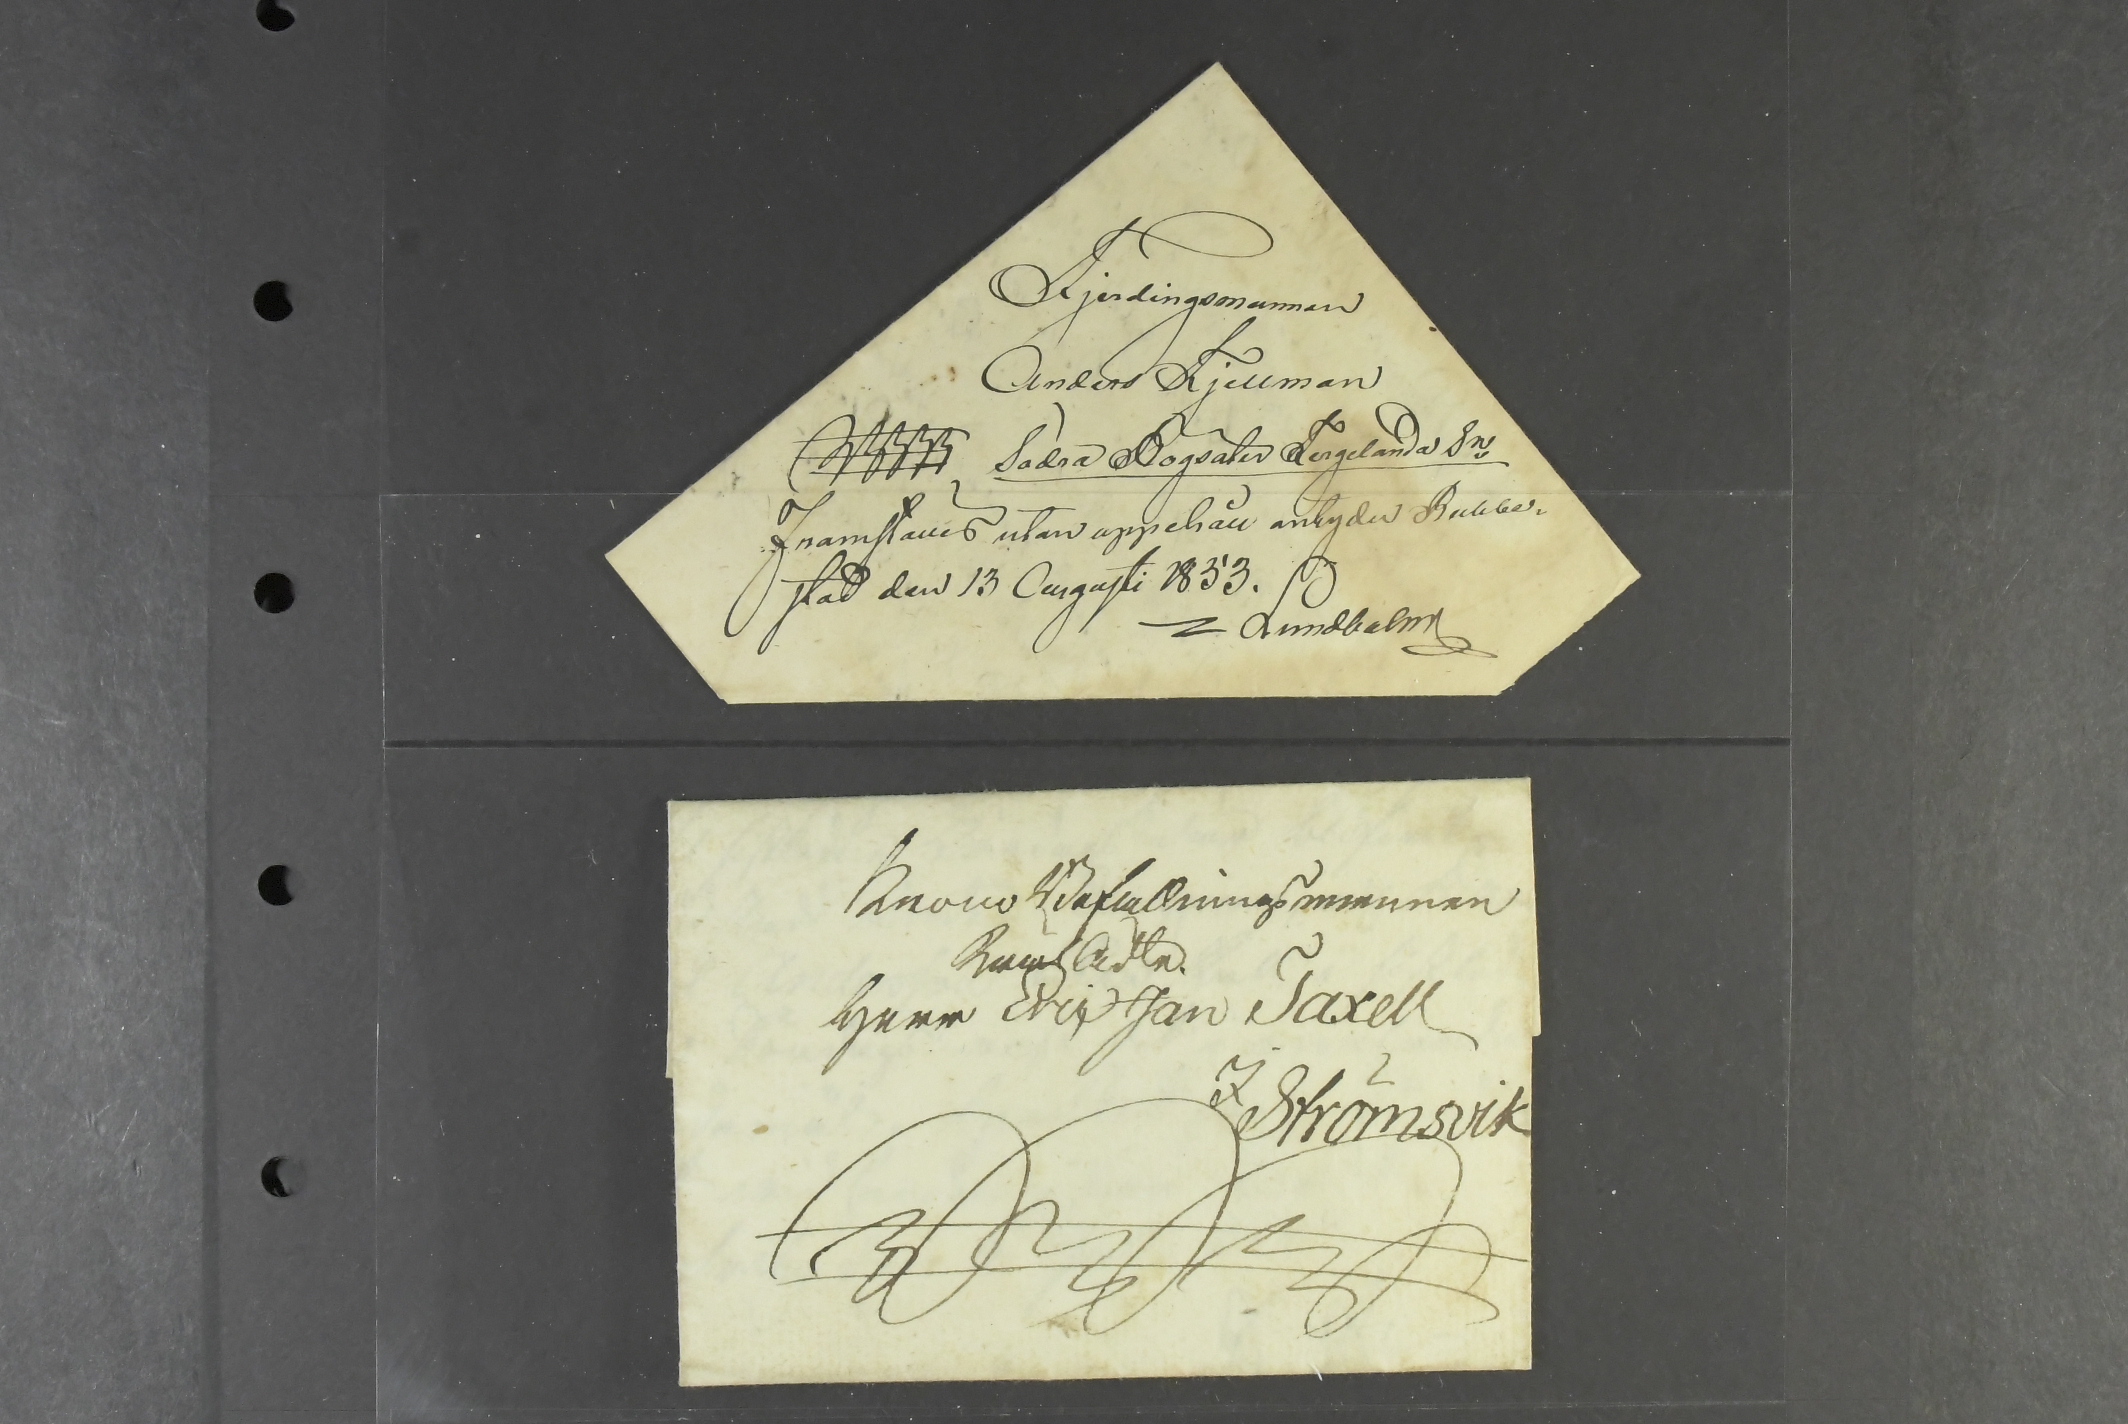 Fjerdingsmannen
Anders Kjellman
Södra Högsäter Fergelanda Sn
Framskaffes utan uppehåll antyder Bullar-
stad den 13 Augusti 1853.
Lundholm
Krono Befallningsmannen
Herr Eric Jan Taxell
I Strömsvik